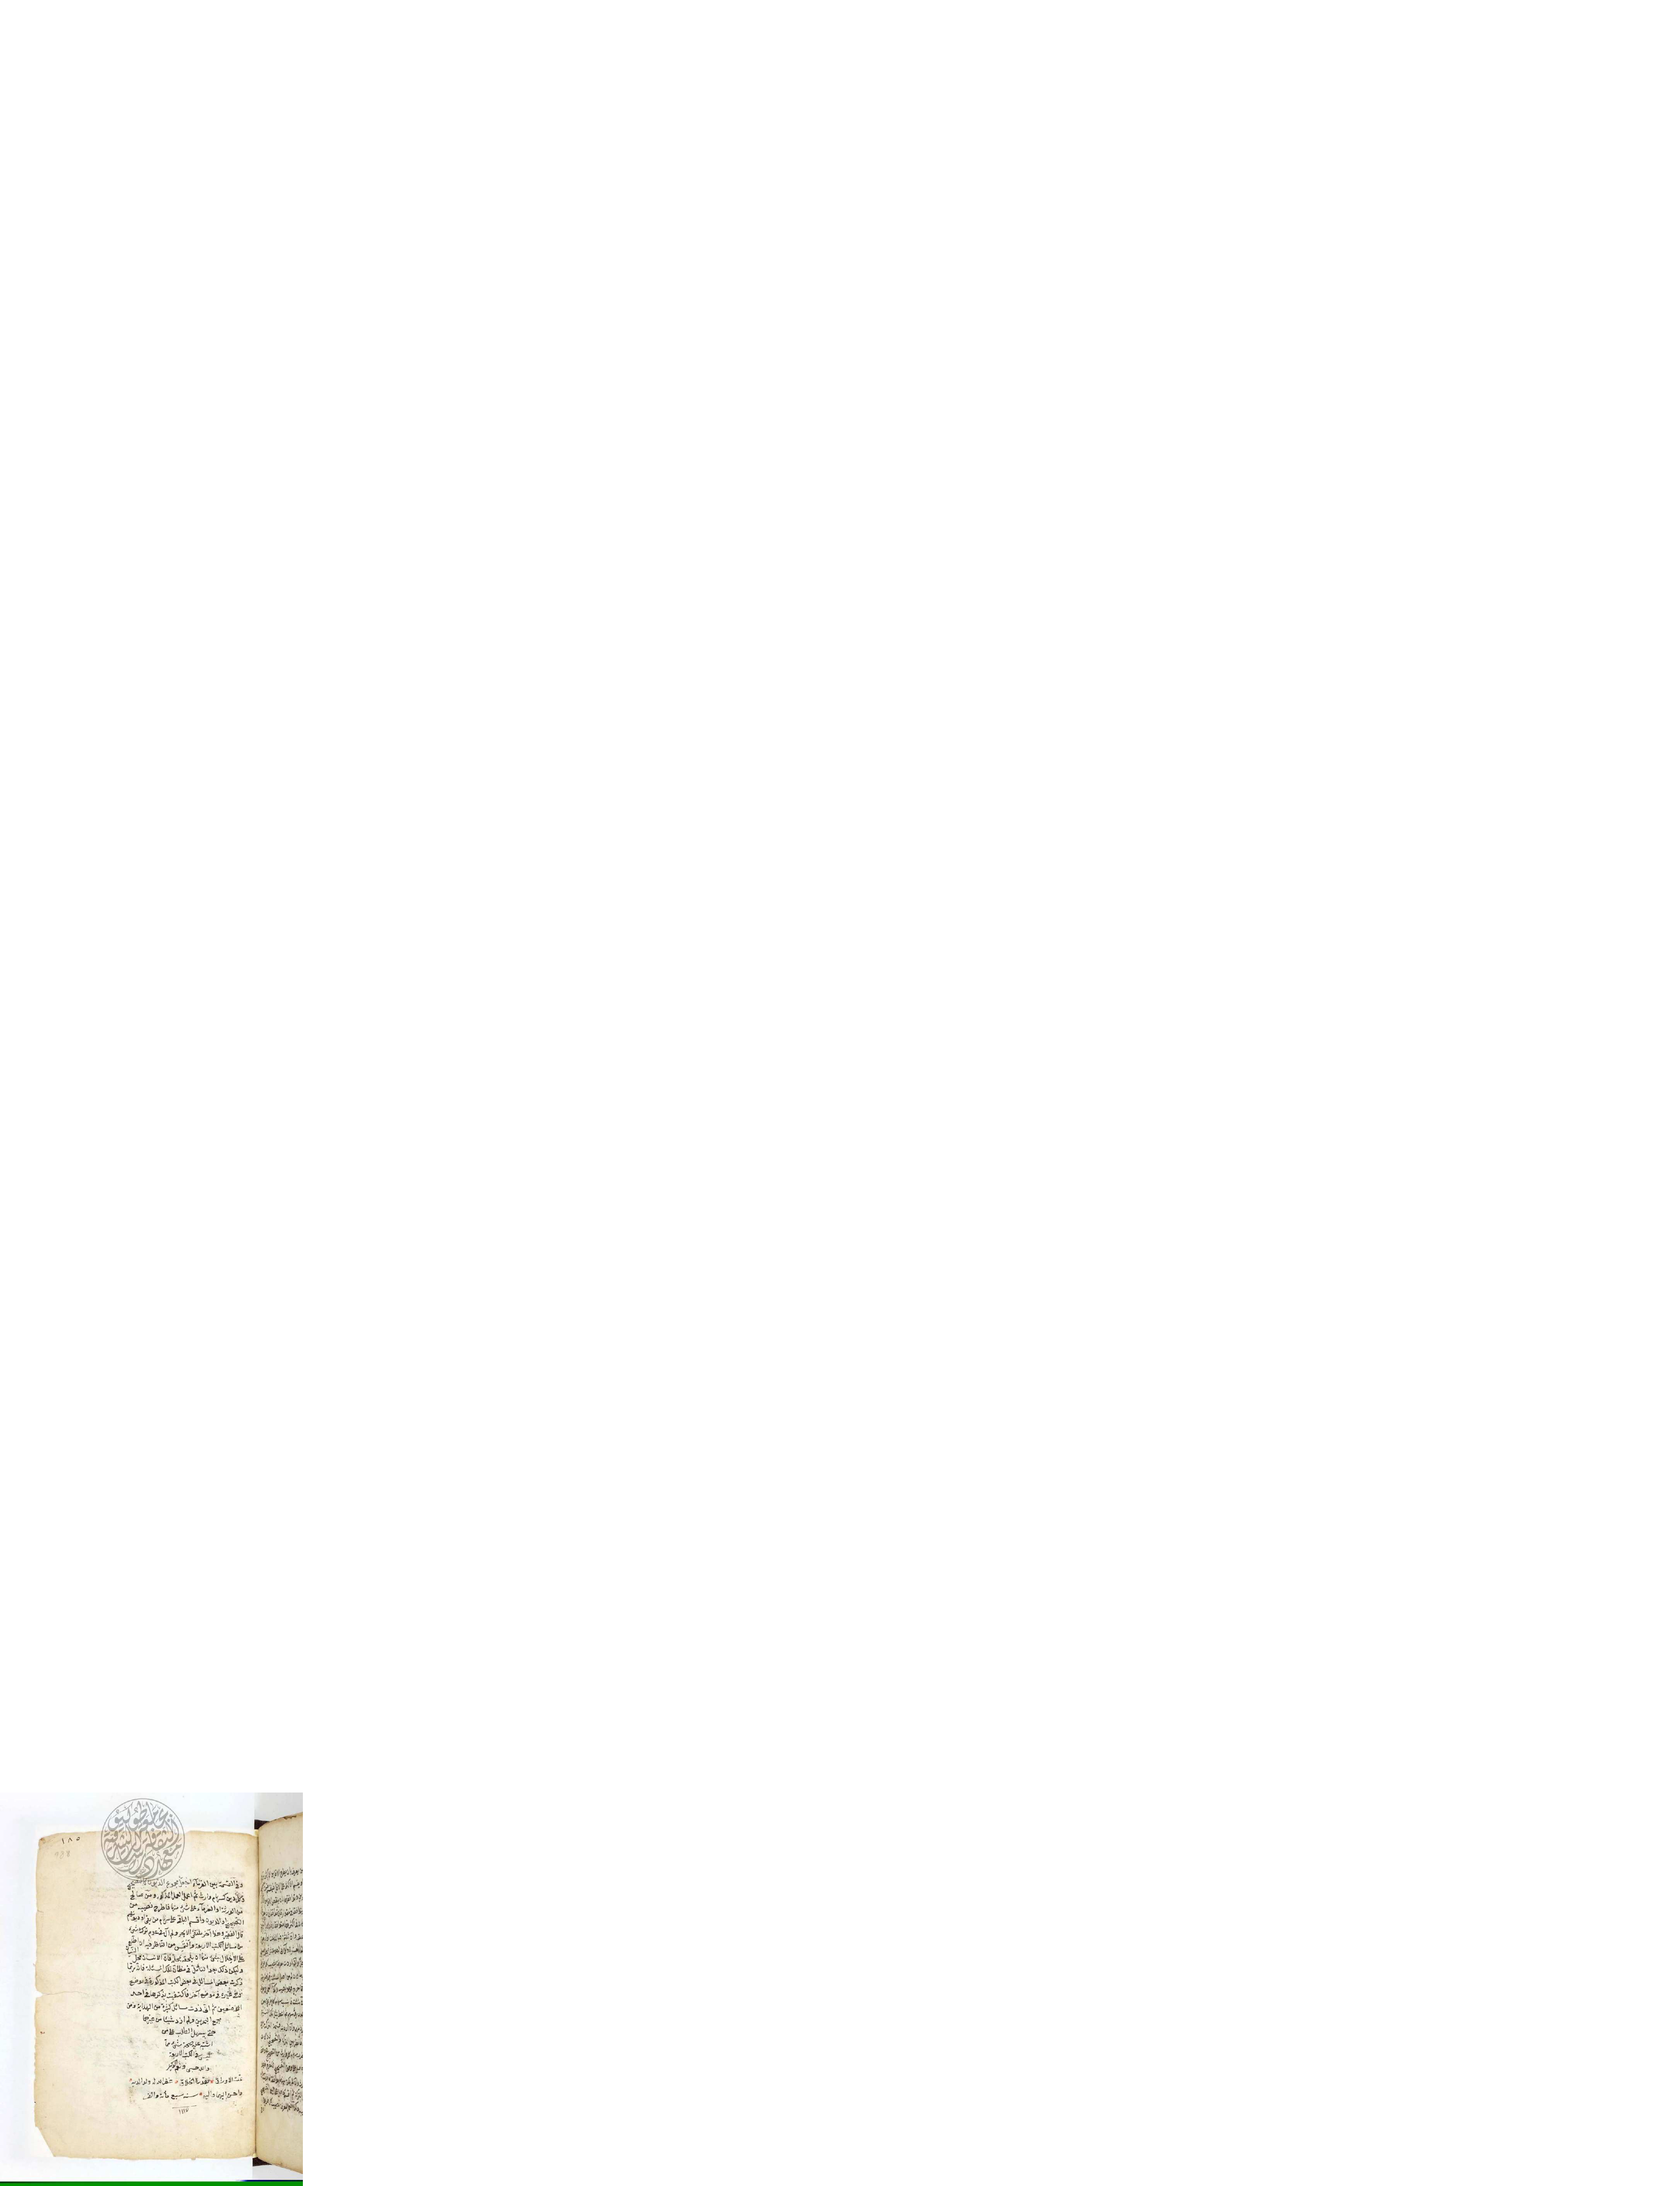 ١٨٥
وفي القسمة بين الغرماء اجعل مجموع الديون كالتصحيح
وكل دين كسهام وارث ثم اعمل العمل المذكور ومن صالح
من الورثة او الغرماء على شئ منها فاطرح نصيبه من
التصحيح او الديون واقسم الباقي على سهام من بقي او ديونهم
قال الفقير هذا آخر ملتقى الابحر ولم آل جهدا في عدم ترك شئ
من مسائل الكتب الاربعة والتمس من الناظر فيه ان اطلع
على الاخلال بشئ منها ان يلحقه بمحله فان الانسان محل النسيان
وليكن ذلك بعد التأمل في مظان تلك المسئلة فانه ربما
ذكرت بعض المسائل في بعض الكتب المذكورة في موضع
وفي غيره في موضع آخر فاكتفيت بذكرها في احد
الموضعين ثم اني زدت مسائل كثيرة من الهداية ومن
مجمع البحرين ولم ازد شيئا من غيرهما
حتى يسهل الطلب على من
اشتبه عليه صحة شئ مما
ليس في الكتب الاربعة
والله حسبي ونعم الوكيل
سنة سبع مائة والف